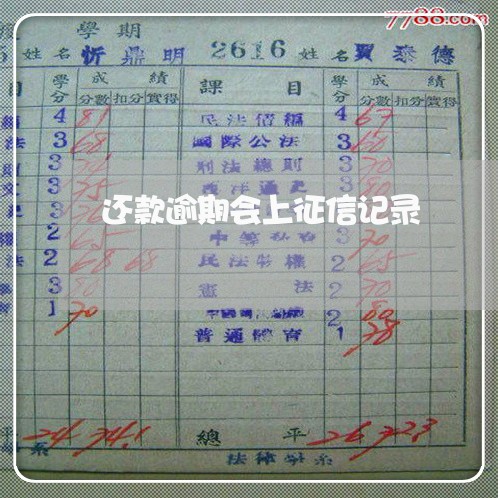 7788.com
學期
姓名 忻鼎明 2616 姓名 賈泰德
目 學分 成績 課目 學分 成績
分數 扣分 實得 分數 扣分 實得
4 81 民法債編 4 67
法 3 68 國際公法 3 60
3 刑法總則 3 70
3 75 西洋通史 3 80
还款逾期会上征信记录
2 65 3 70
法 2 68 68 民法物權 2 65
3 80 憲法 2 70
1 70 2 80
普通體育 1 78
平 24 74.1 總平 26 72.3
系 法律學系